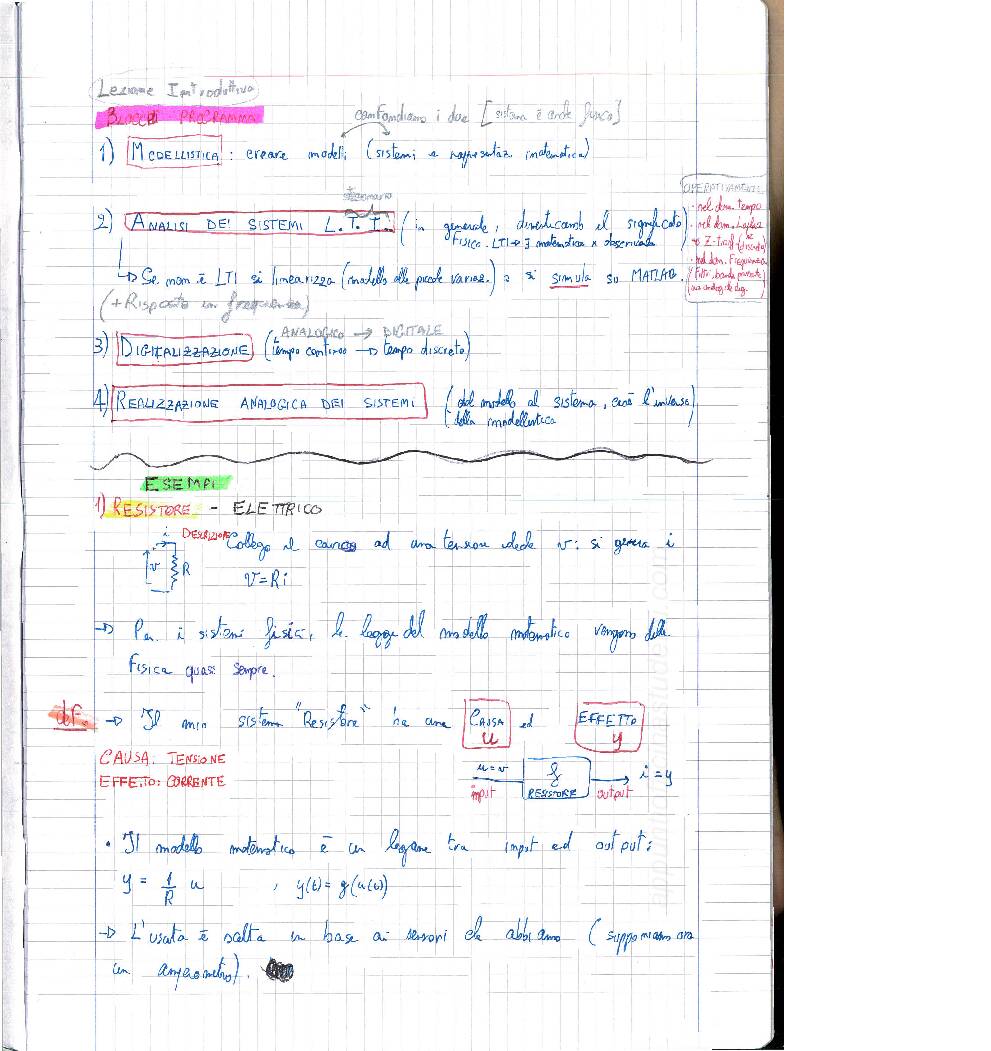 Lezione Introduttiva
BLOCCHI PROGRAMMA
confondiamo i due [sistema è anche fisico]
1) MODELLISTICA : creare modelli (sistemi e rappresentaz. matematica)
stazionario
2) ANALISI DEI SISTEMI L. T. I. (in generale, dimenticando il significato
FISICO. LTI → ∃ matematica x descriverla)
↳ Se non è LTI si linearizza (modello alle piccole variaz.) e si simula su MATLAB.
(+ Risposta in frequenza)
OPERATIVAMENTE
• nel dom. tempo
• nel dom. Laplace
o Z-trasf (se discreto)
• nel dom. Frequenza
(Filtri, banda passante)
ANALOGICO → DIGITALE
3) DIGITALIZZAZIONE (tempo continuo → tempo discreto)
4) REALIZZAZIONE ANALOGICA DEI SISTEMI (dal modello al sistema, cioè l'inverso
della modellistica)
ESEMPI
1) RESISTORE - ELETTRICO
DESCRIZIONE Collego il carico ad una tensione ideale v: si genera i
i
v R
V = Ri
→ Per i sistemi fisici, le leggi del modello matematico vengono dalla
Fisica quasi sempre.
def. → Il mio sistema "Resistore" ha una CAUSA u ed EFFETTO y
CAUSA: TENSIONE
EFFETTO: CORRENTE
u = v g i = y
input RESISTORE output
• Il modello matematico è un legame tra input ed output:
y = 1/R u , y(t) = g(u(t))
→ L'uscita è scelta in base ai sensori che abbiamo (supponiamo ora
un amperometro).